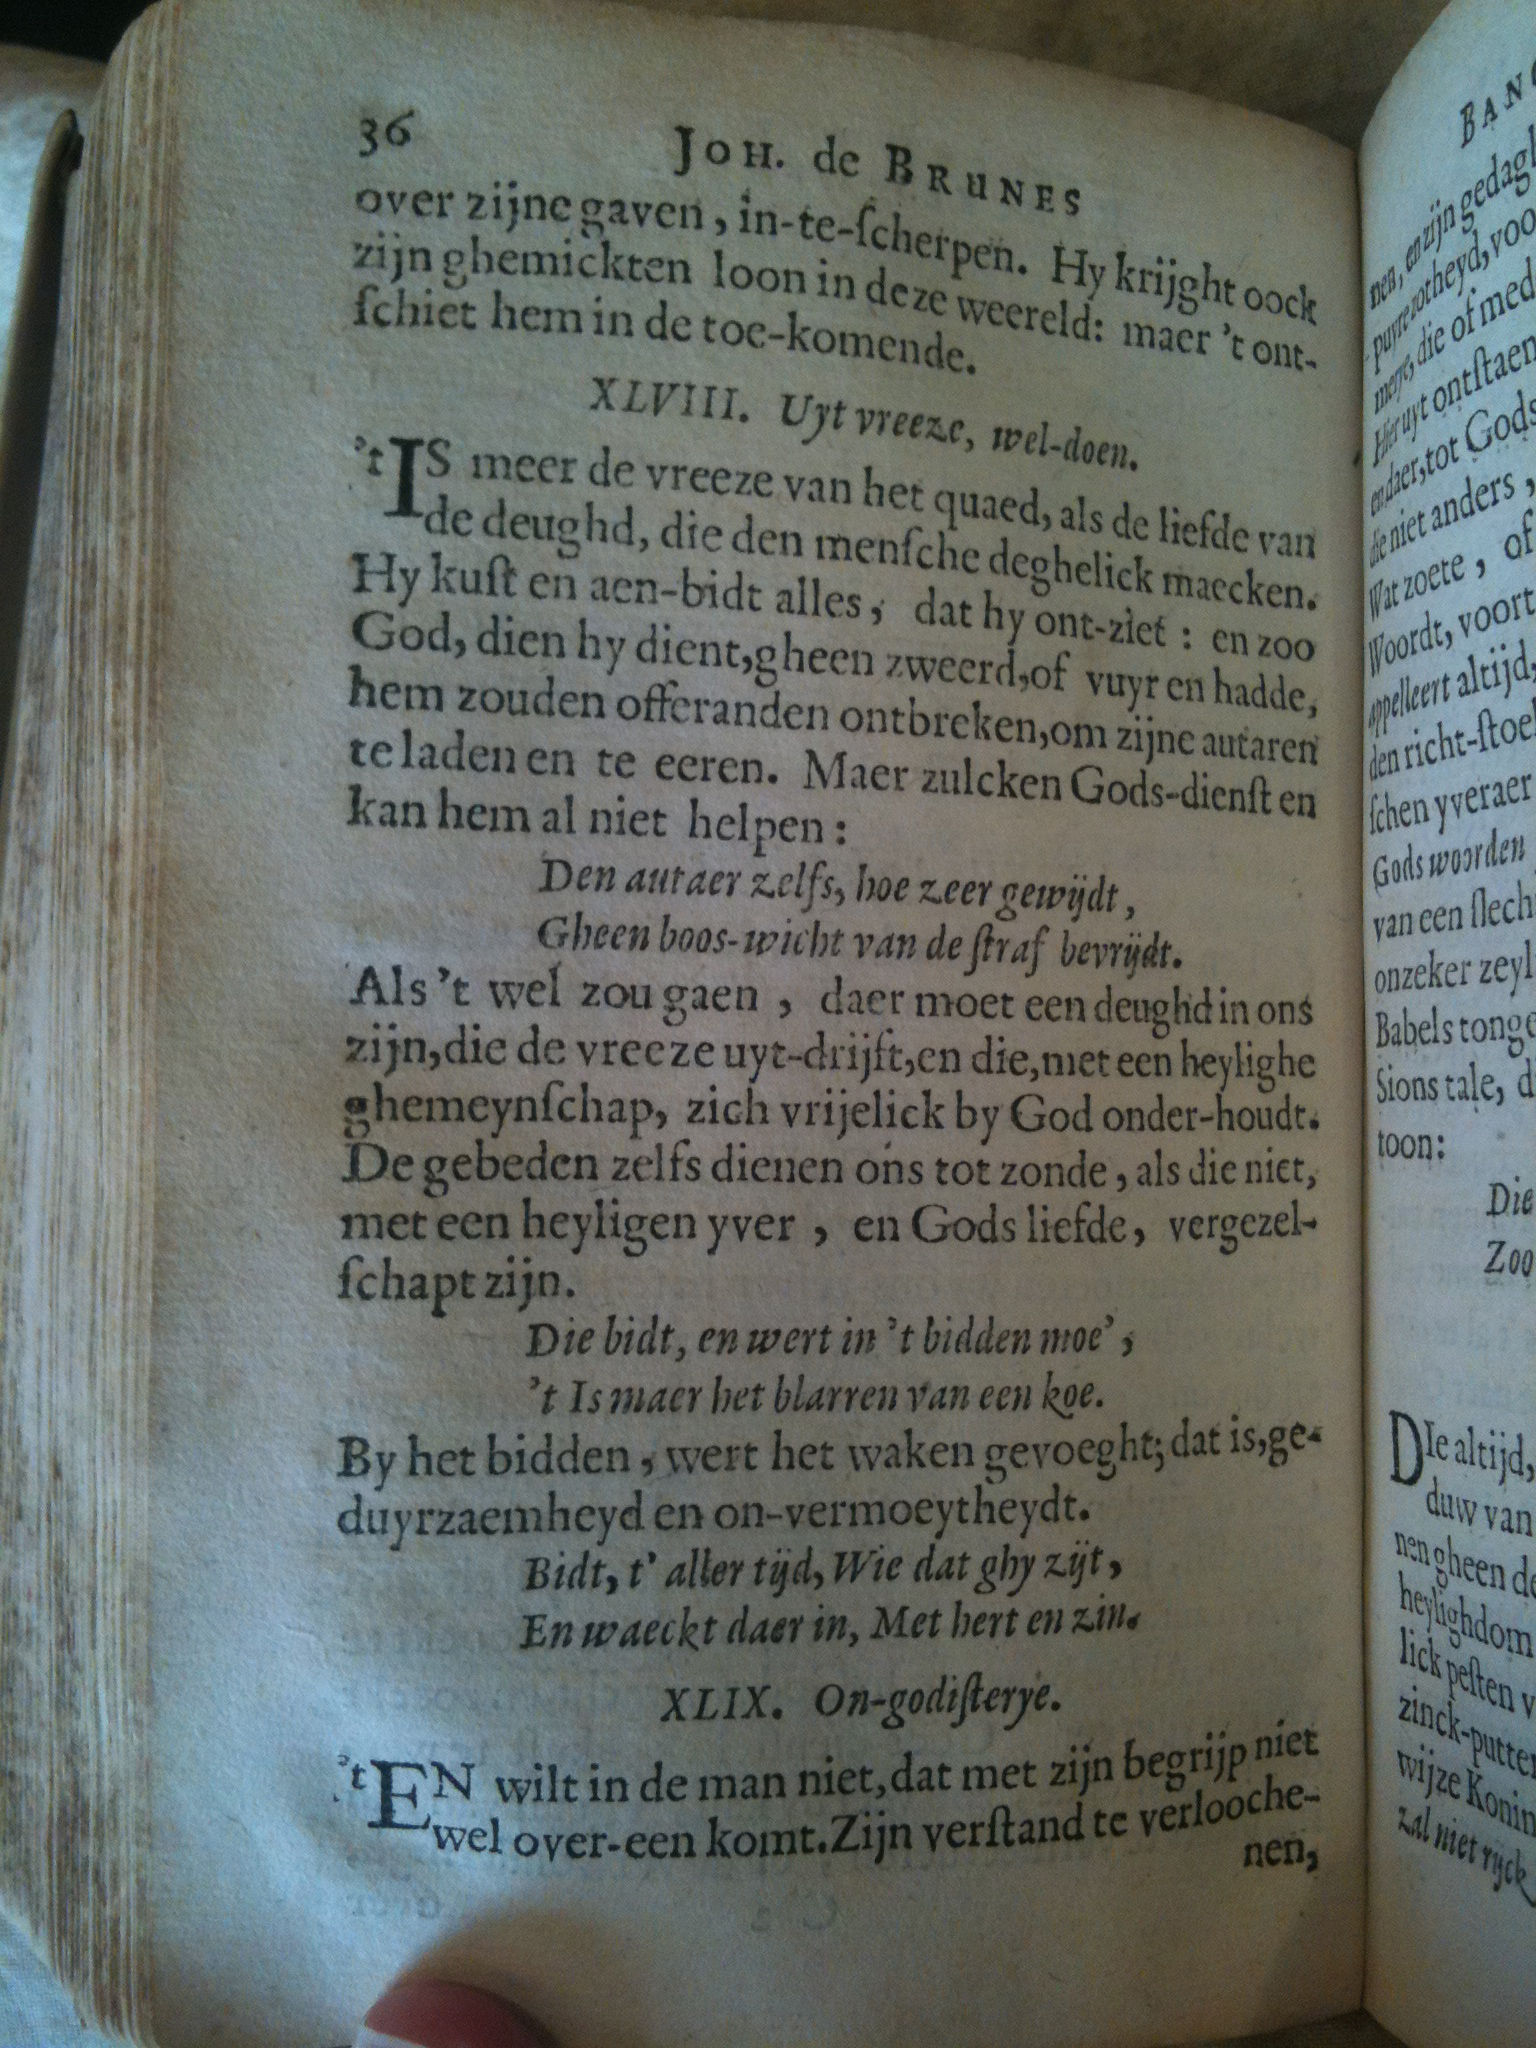 36
Joh. de Brunes
over zijne gaven, in-te-ſcherpen. Hy krijght oock
zijn ghemickten loon in deze weereld: maer 't ont-
ſchiet hem in de toe-komende.
XLVIII. Uyt vreeze, wel-doen.
't IS meer de vreeze van het quaed, als de liefde van
de deughd, die den menſche deghelick maecken.
Hy kuſt en aen-bidt alles, dat hy ont-ziet: en zoo
God, dien hy dient, gheen zweerd, of vuyr en hadde,
hem zouden offeranden ontbreken, om zijne autaren
te laden en te eeren. Maer zulcken Gods-dienſt en
kan hem al niet helpen:
Den autaer zelfs, hoe zeer gewijdt,
Gheen boos-wicht van de ſtraf bevrijdt.
Als 't wel zou gaen, daer moet een deughd in ons
zijn, die de vreeze uyt-drijft, en die, met een heylighe
ghemeynſchap, zich vrijelick by God onder-houdt.
De gebeden zelfs dienen ons tot zonde, als die niet,
met een heyligen yver, en Gods liefde, vergezel-
ſchapt zijn.
Die bidt, en wert in 't bidden moe',
't Is maer het blarren van een koe.
By het bidden, wert het waken gevoeght; dat is, ge-
duyrzaemheyd en on-vermoeytheydt.
Bidt, t' aller tijd, Wie dat ghy zijt,
En waeckt daer in, Met hert en zin.
XLIX. On-godiſterye.
't EN wilt in de man niet, dat met zijn begrijp niet
wel over-een komt. Zijn verſtand te verlooche-
nen,
nen, en zijn
puyre zotheyd, voo
merye, die of med
Hier uyt ontſtaen
en daer, tot Gods
die niet anders,
Wat zoete, of
Woordt, voort
appelleert altijd,
den richt-ſtoel
ſchen yveraer
Gods woorden
van een ſlech
onzeker zeyl
Babels tonge
Sions tale, d
toon:
Die
Zoo
DIe altijd,
duw van
nen gheen de
heylighdom
lick peſten v
zinck-putten
wijze Konin
zal niet rijck